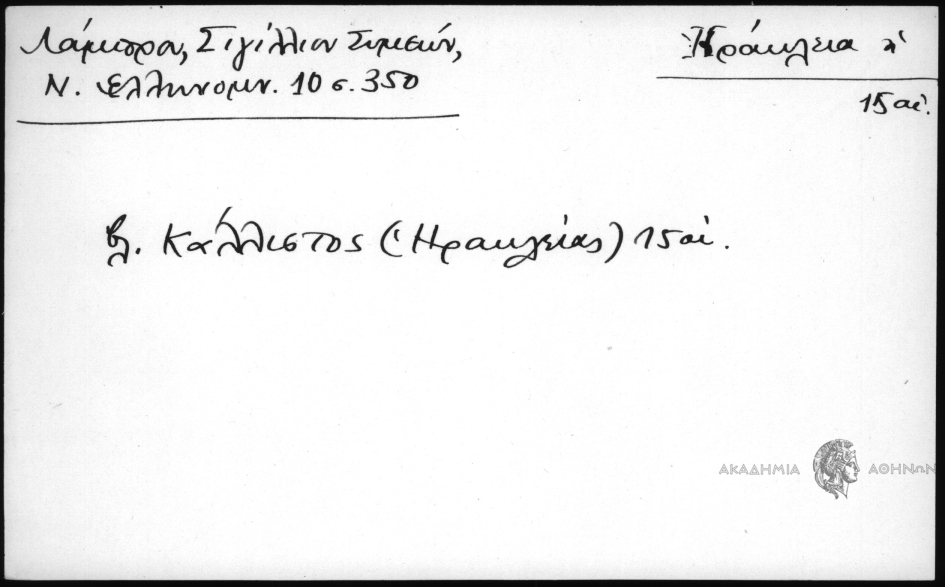 Λάμπρου, Σιγίλλιον Συμεών,
Ν. Ἑλληνομν. 10 σ. 350
Ἡράκλεια
15 αἰ.
βλ. Κάλλιστος (Ἡρακλείας) 15 αἰ.
ΑΚΑΔΗΜΙΑ ΑΘΗΝΩΝ